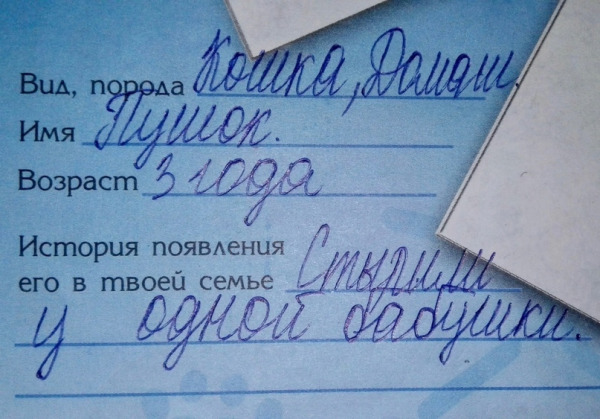 Вид, порода Кошка, Домаш.
Имя Пушок.
Возраст 3 года
История появления
его в твоей семье Стырили
у одной бабушки.